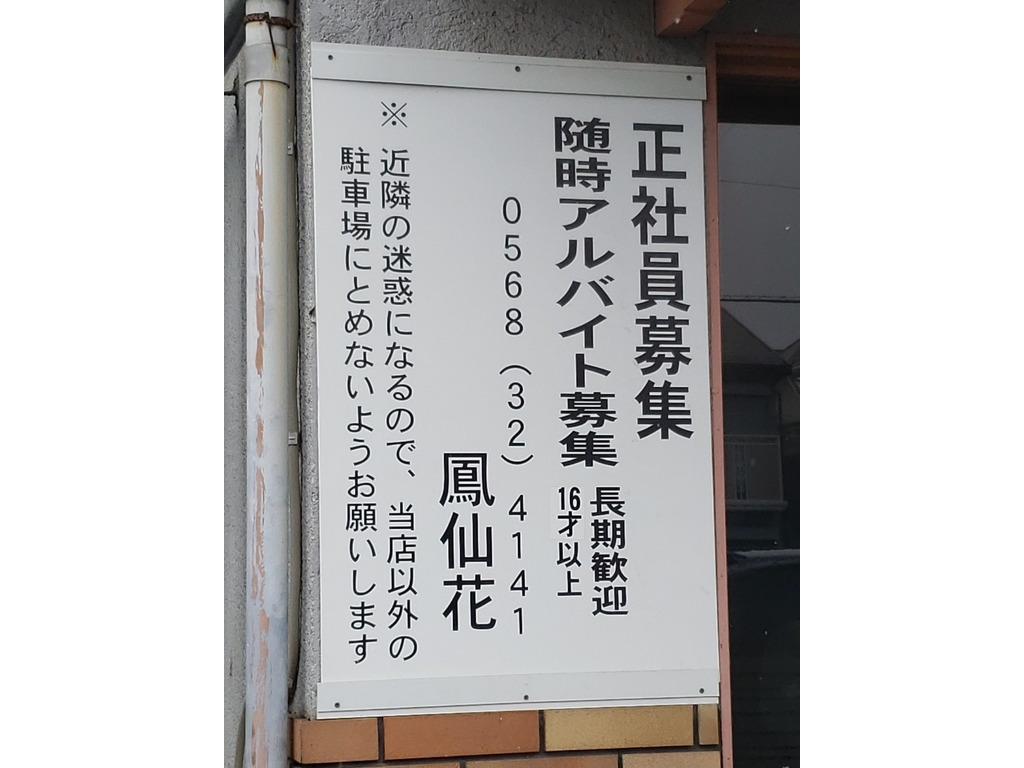 正社員募集
随時アルバイト募集
長期歓迎
16才以上
0568（32）4141
鳳仙花
※近隣の迷惑になるので、当店以外の
駐車場にとめないようお願いします